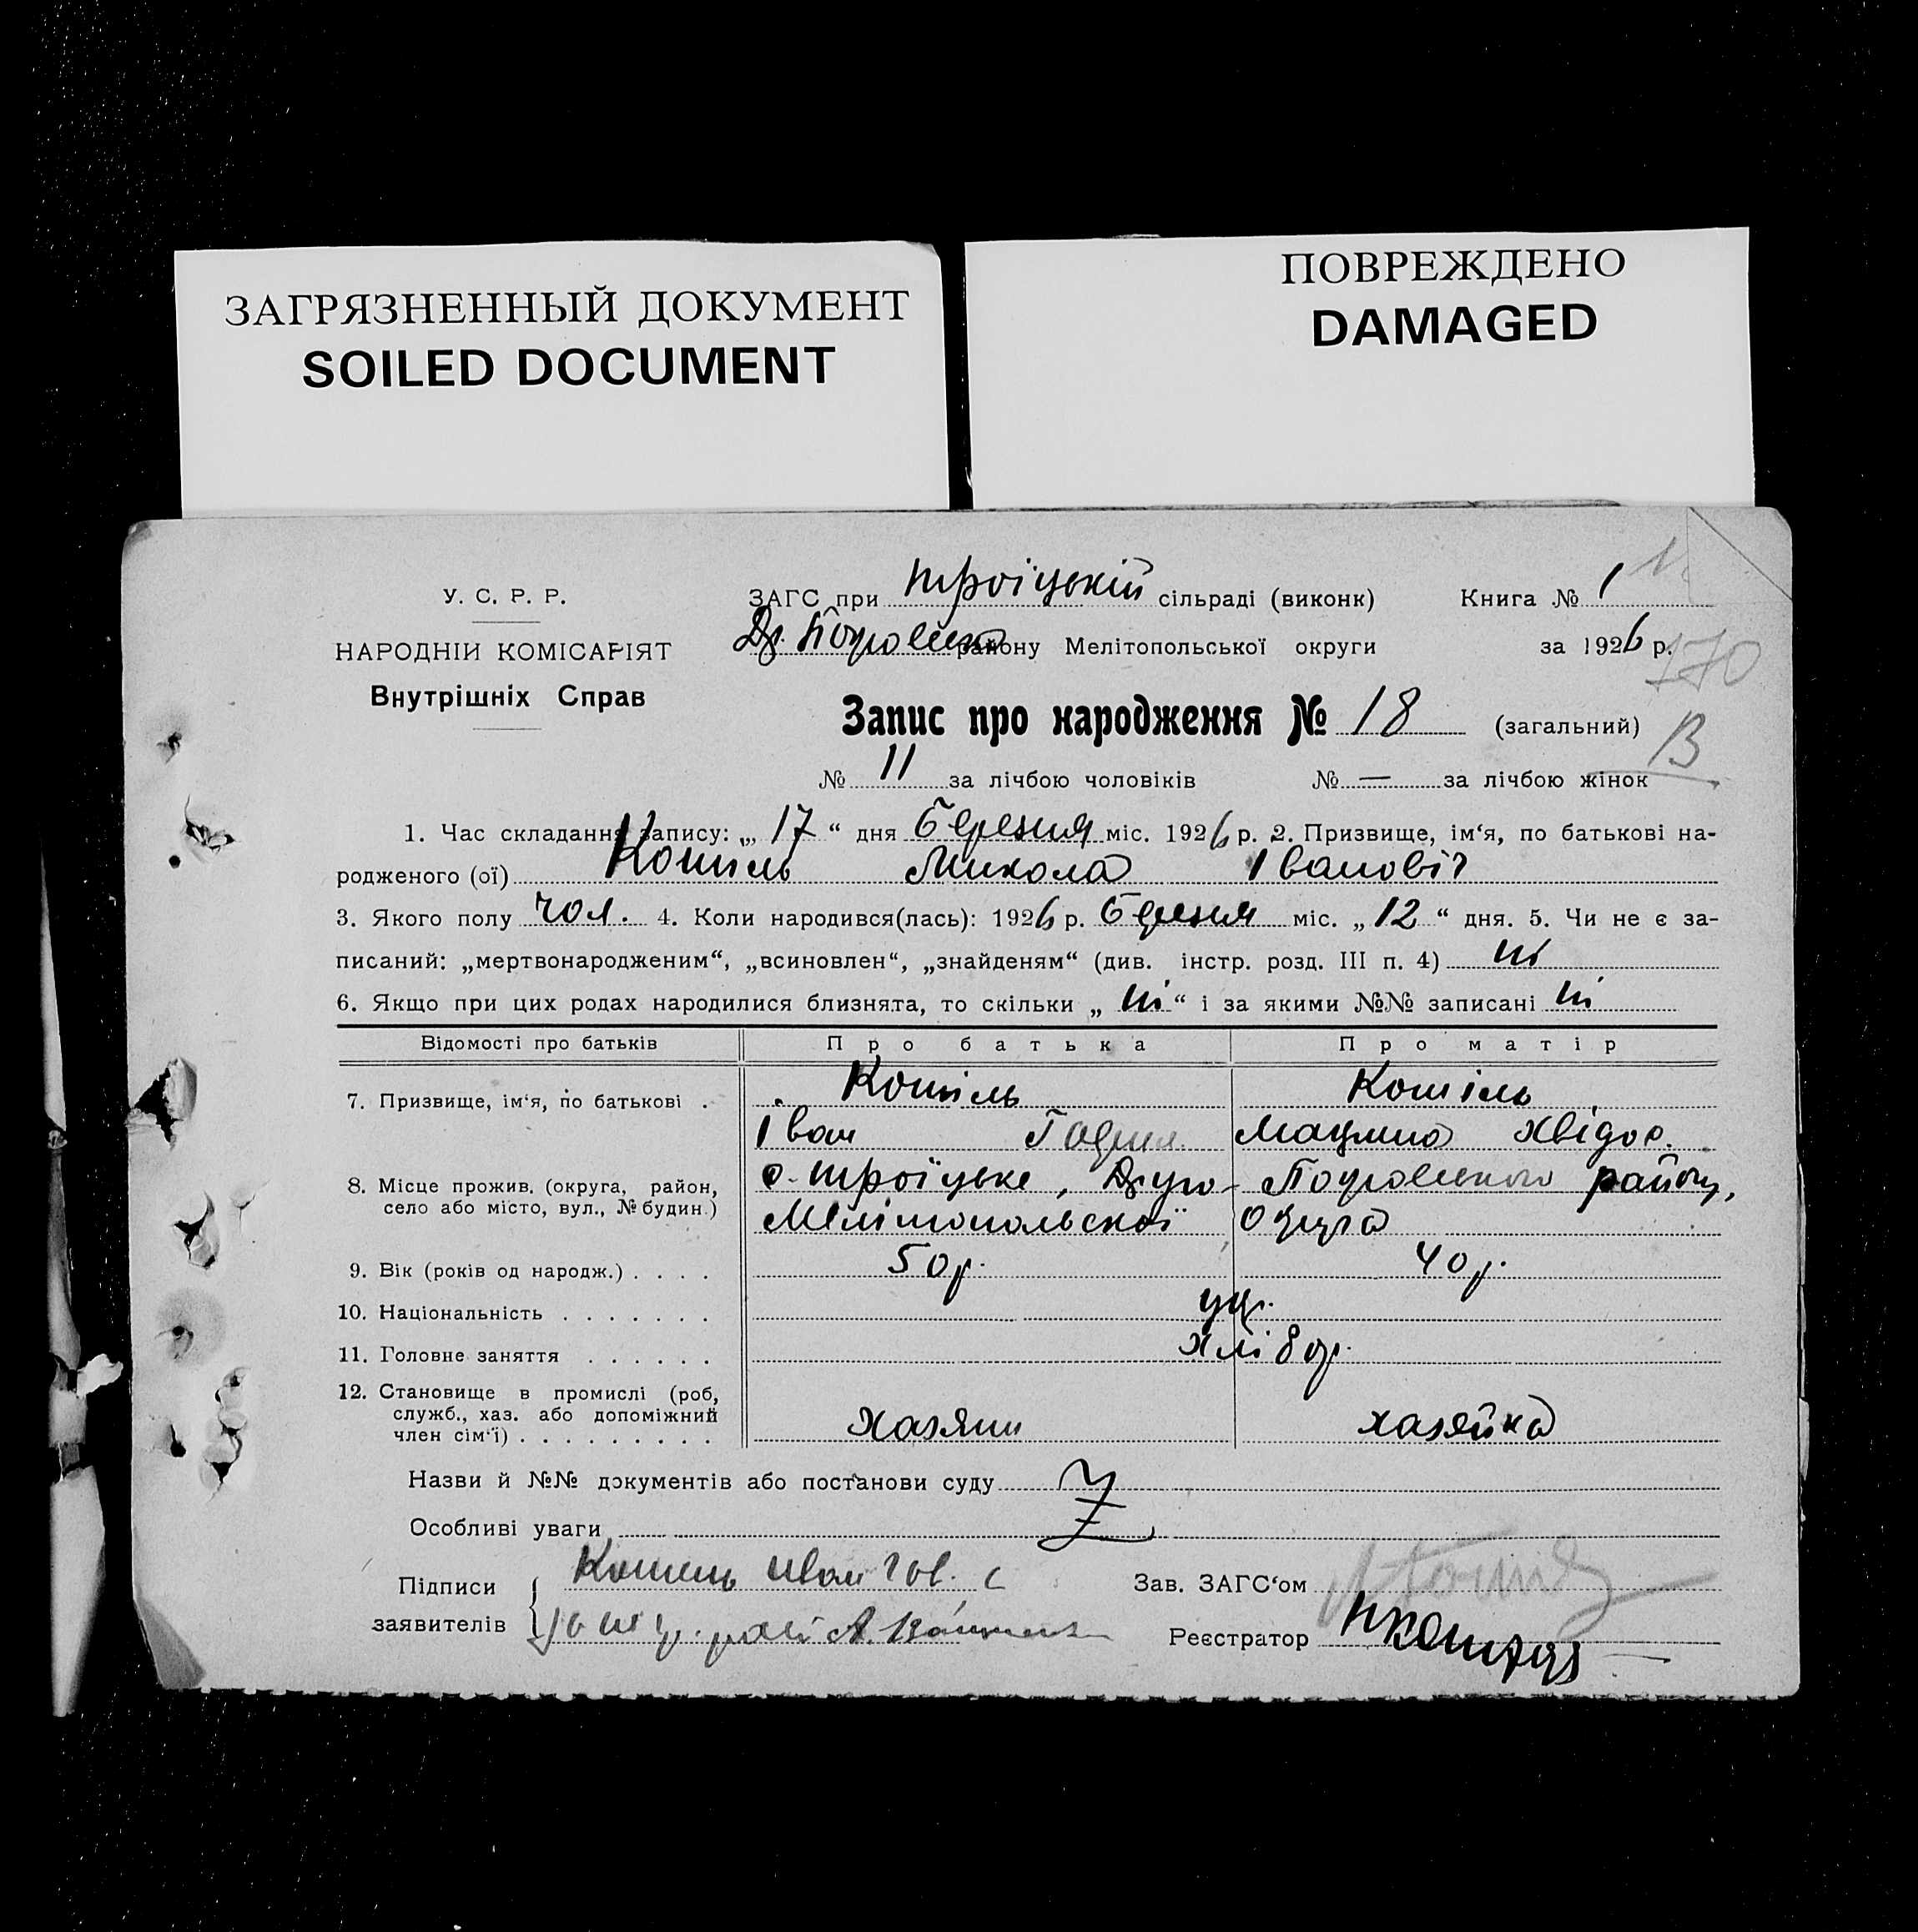 ЗАГРЯЗНЕННЫЙ ДОКУМЕНТ
SOILED DOCUMENT
ПОВРЕЖДЕНО
DAMAGED
У. С. Р. Р.
НАРОДНІЙ КОМІСАРІЯТ
Внутрішніх Справ
ЗАГС при Троїцькій сільраді (виконк) Книга № 1
району Мелітопольської округи за 1926 р.
170
Запис про народження № 18 (загальний)
В
№ 11 за лічбою чоловіків № — за лічбою жінок
1. Час складання запису: „ 17 “ дня березня міс. 1926 р. 2. Призвище, ім‘я, по батькові на-
родженого (ої) Котіль Микола Івановіч
3. Якого полу чол. 4. Коли народився(лась): 1926 р. березня міс. „ 12 “ дня. 5. Чи не є за-
писаний: „мертвонародженим“, „всиновлен“, „знайденям“ (див. інстр. розд. III п. 4) ні
6. Якщо при цих родах народилися близнята, то скільки „ ні “ і за якими №№ записані ні
Відомості про батьків Про батька Про матір
7. Призвище, ім‘я, по батькові . Котіль Котіль
Іван Гаври. Хвідор.
8. Місце прожив. (округа, район, с. Троїцьке, Друго- Покровського району,
село або місто, вул., № будин.) Мелітопольскої Округа
9. Вік (років од народж.) . . . . 50 р. 40 р.
10. Національність . . . . . . . укр.
11. Головне заняття . . . . . . хлібор.
12. Становище в промислі (роб,
служб., хаз. або допоміжний
член сім‘ї) . . . . . . . . . хазяїн хазяйка
Назви й №№ документів або постанови суду
Особливі уваги
Підписи Котиль Иван Гов. Зав. ЗАГС‘ом
заявителів Реєстратор